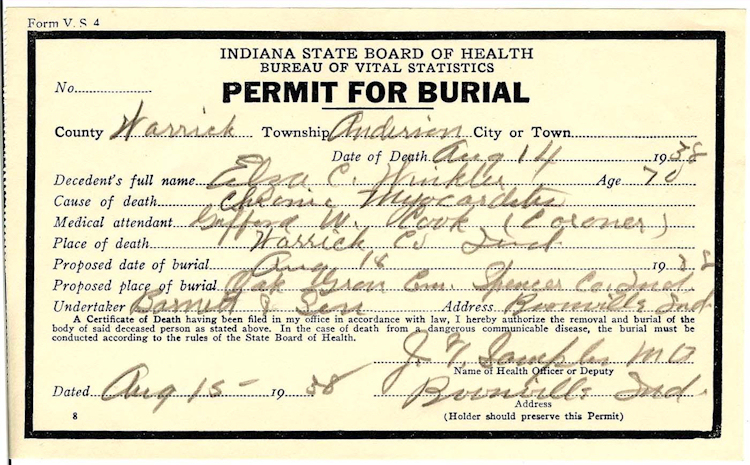 Form V. S. 4
INDIANA STATE BOARD OF HEALTH
BUREAU OF VITAL STATISTICS
No.
PERMIT FOR BURIAL
County Warrick Township Anderson City or Town
Date of Death Aug 14 1938
Decedent's full name Elza C. Winkler Age 70
Cause of death Chronic Myocarditis
Medical attendant Gifford W. Cook (Coroner)
Place of death Warrick Co Ind
Proposed date of burial Aug 18 1938
Proposed place of burial Oak Grov Cem. Spencer Co. Ind
Undertaker Barnett & Son Address Boonville Ind
A Certificate of Death having been filed in my office in accordance with law, I hereby authorize the removal and burial of the
body of said deceased person as stated above. In the case of death from a dangerous communicable disease, the burial must be
conducted according to the rules of the State Board of Health.
J. Samples MD
Name of Health Officer or Deputy
Dated Aug 15 - 1938 Boonville Ind.
Address
8 (Holder should preserve this Permit)